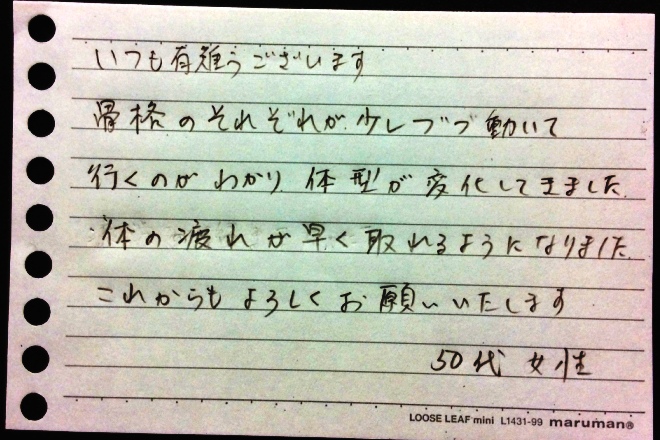 いつも有難うございます
骨格のそれぞれが少しづつ動いて
行くのがわかり 体型が変化してきました
体の疲れが早く取れるようになりました
これからもよろしくお願いいたします
50代 女性
LOOSE LEAF mini L1431-99 maruman®